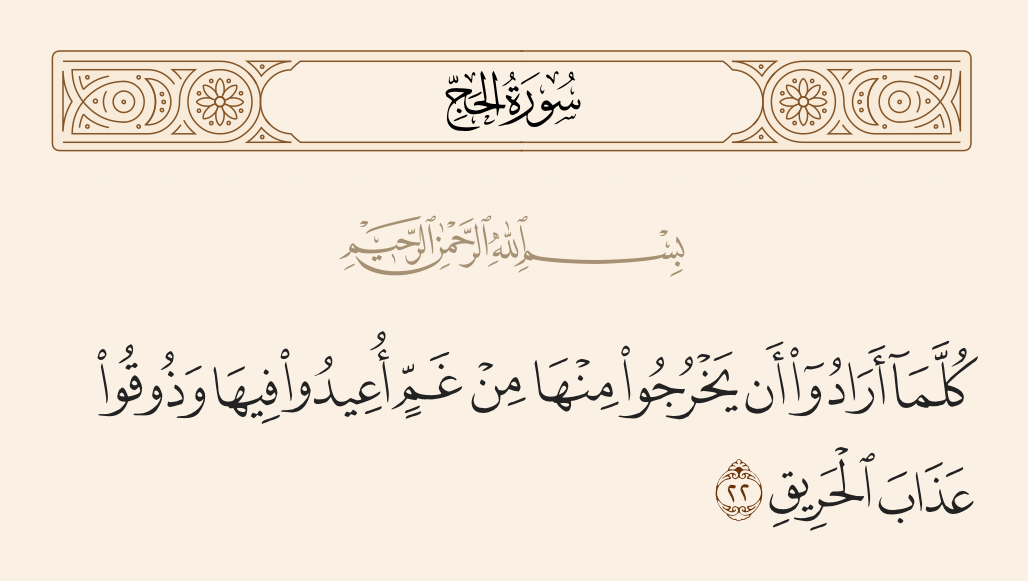 سُورَةُ الحَجِّ
بِسْمِ ٱللَّهِ ٱلرَّحْمَٰنِ ٱلرَّحِيمِ
كُلَّمَآ أَرَادُوٓا۟ أَن يَخْرُجُوا۟ مِنْهَا مِنْ غَمٍّ أُعِيدُوا۟ فِيهَا وَذُوقُوا۟
عَذَابَ ٱلْحَرِيقِ ٢٢